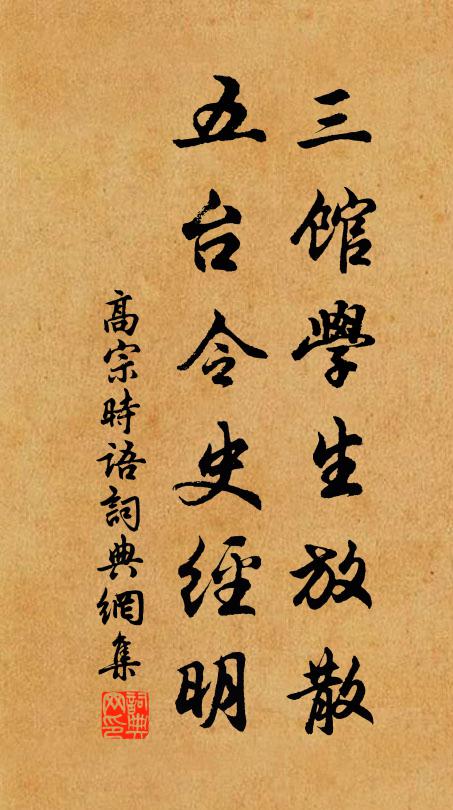 三馆學生放散
五台令史經明
高宗時語詞典網集
詞典網印